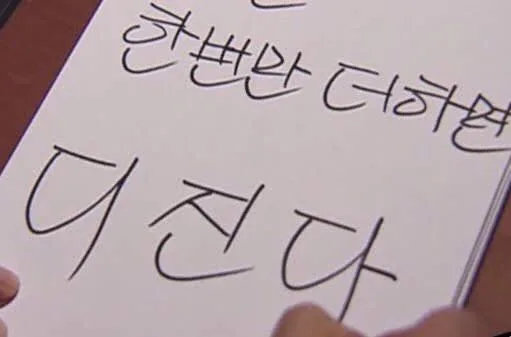 한번만 더하면
디진다